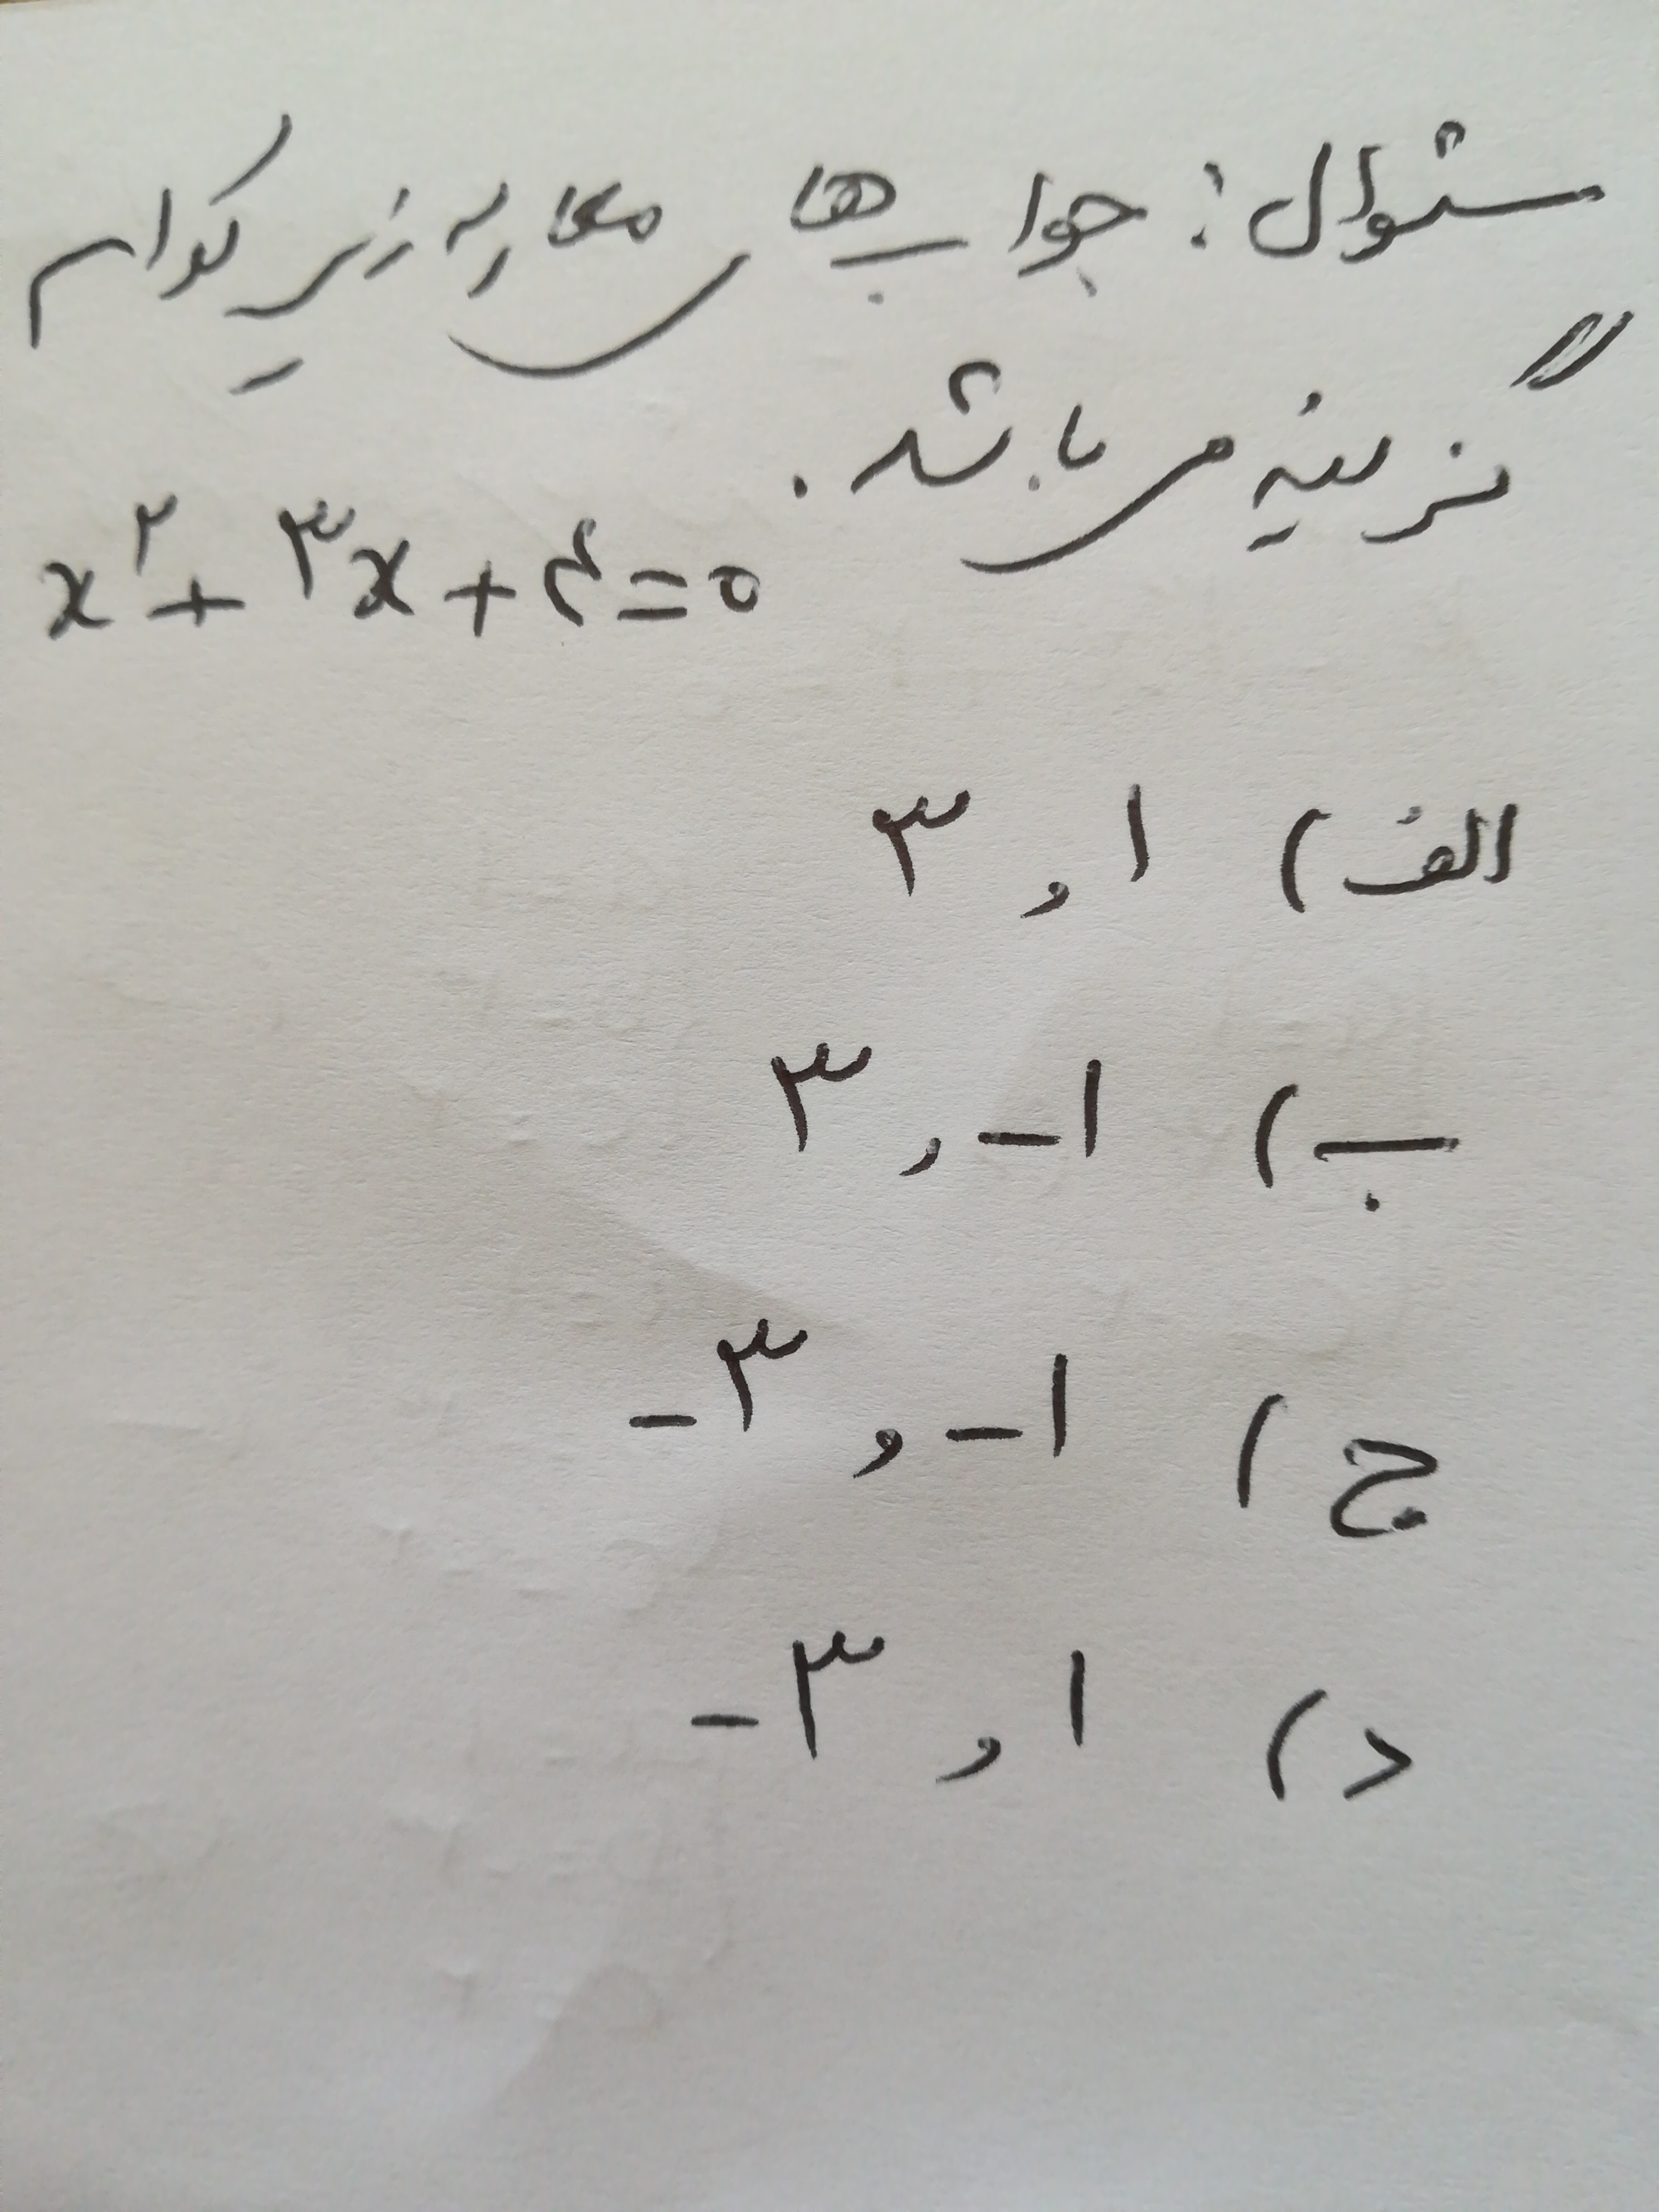 سئوال: جواب‌های معادله زیر کدام
گزینه می باشد.
x²+۳x+۴=۰
الف) ۱ و ۳
ب) ۱- و ۳
ج) ۱- و ۳-
د) ۱ و ۳-